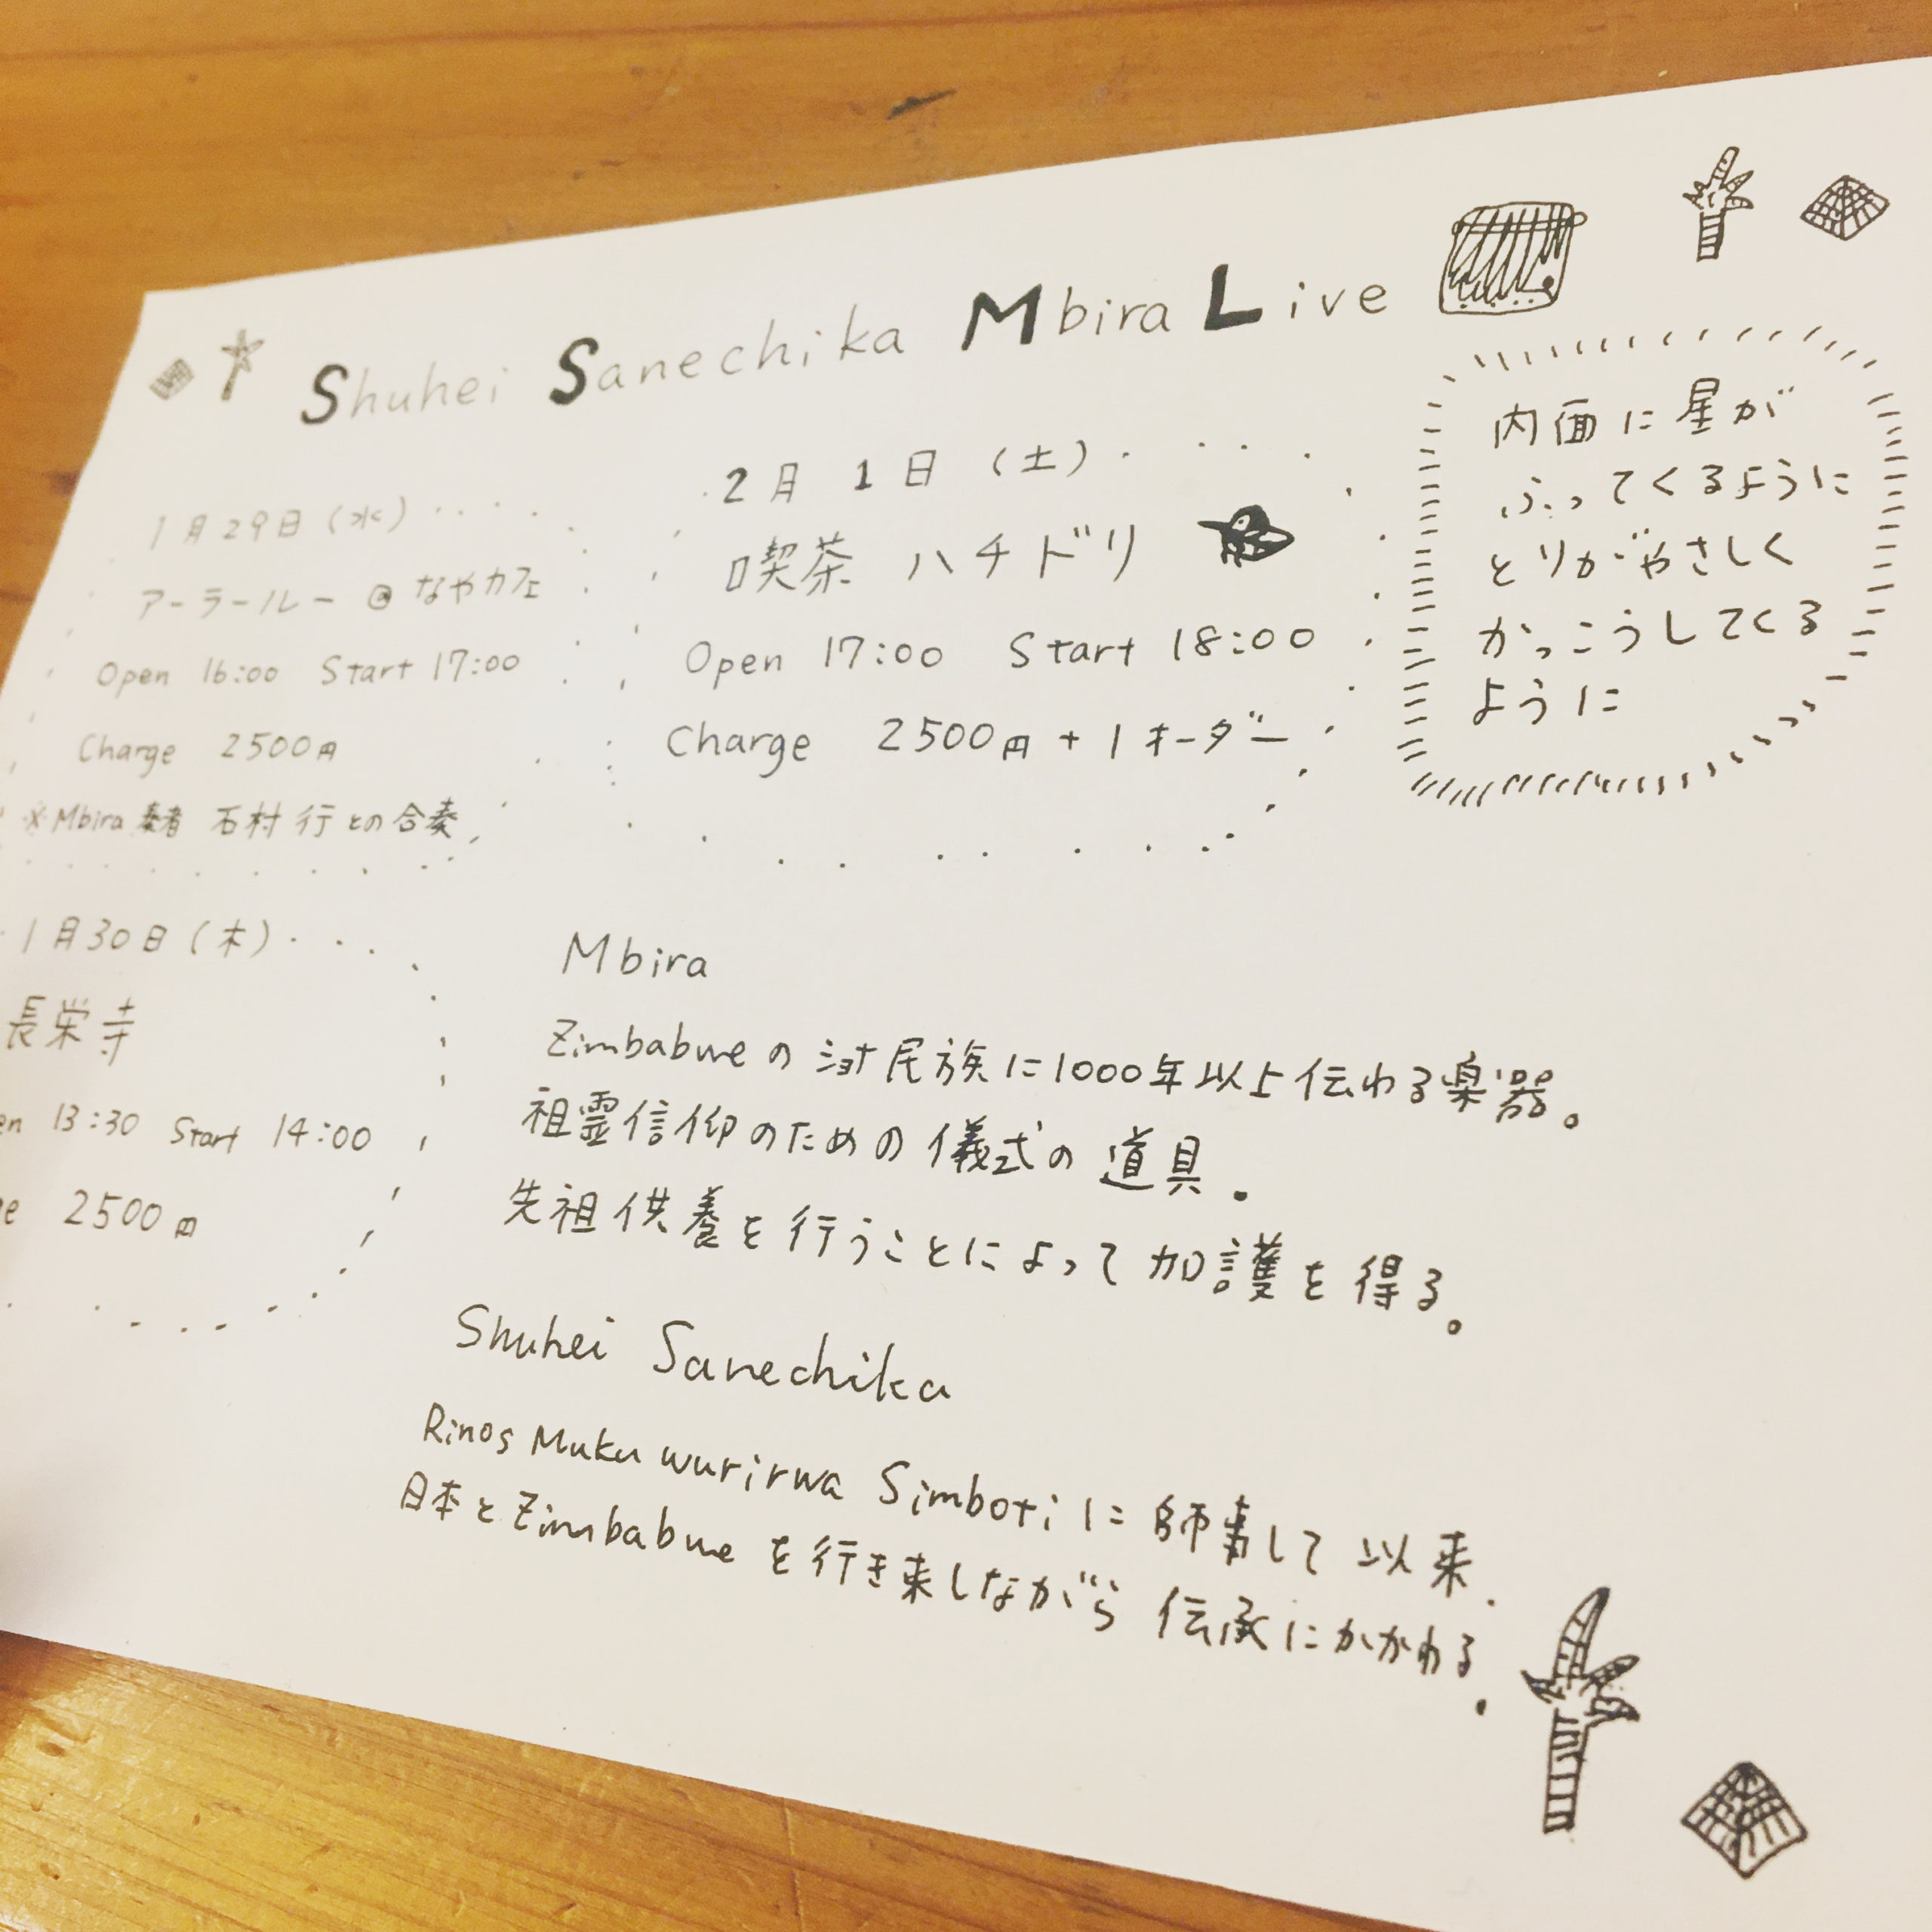 Shuhei Sanechika Mbira Live
1月29日(水)
アーラールー @ なやカフェ
Open 16:00 Start 17:00
Charge 2500円
※Mbira 奏者 石村 行 との 合奏
2月 1日 (土)
喫茶 ハチドリ
Open 17:00 Start 18:00
Charge 2500円 + 1オーダー
内面に星が
ふってくるように
とりがやさしく
かっこうしてくる
ように
1月30日(木)
長栄寺
en 13:30 Start 14:00
ge 2500円
Mbira
Zimbabweの ショナ民族に1000年以上伝わる楽器。
祖霊信仰のための儀式の道具.
先祖供養を行うことによって加護を得る。
Shuhei Sanechika
Rinos Mukuwurirwa Simboti に師事して以来.
日本とZimbabweを行き来しながら 伝承にかかわる.